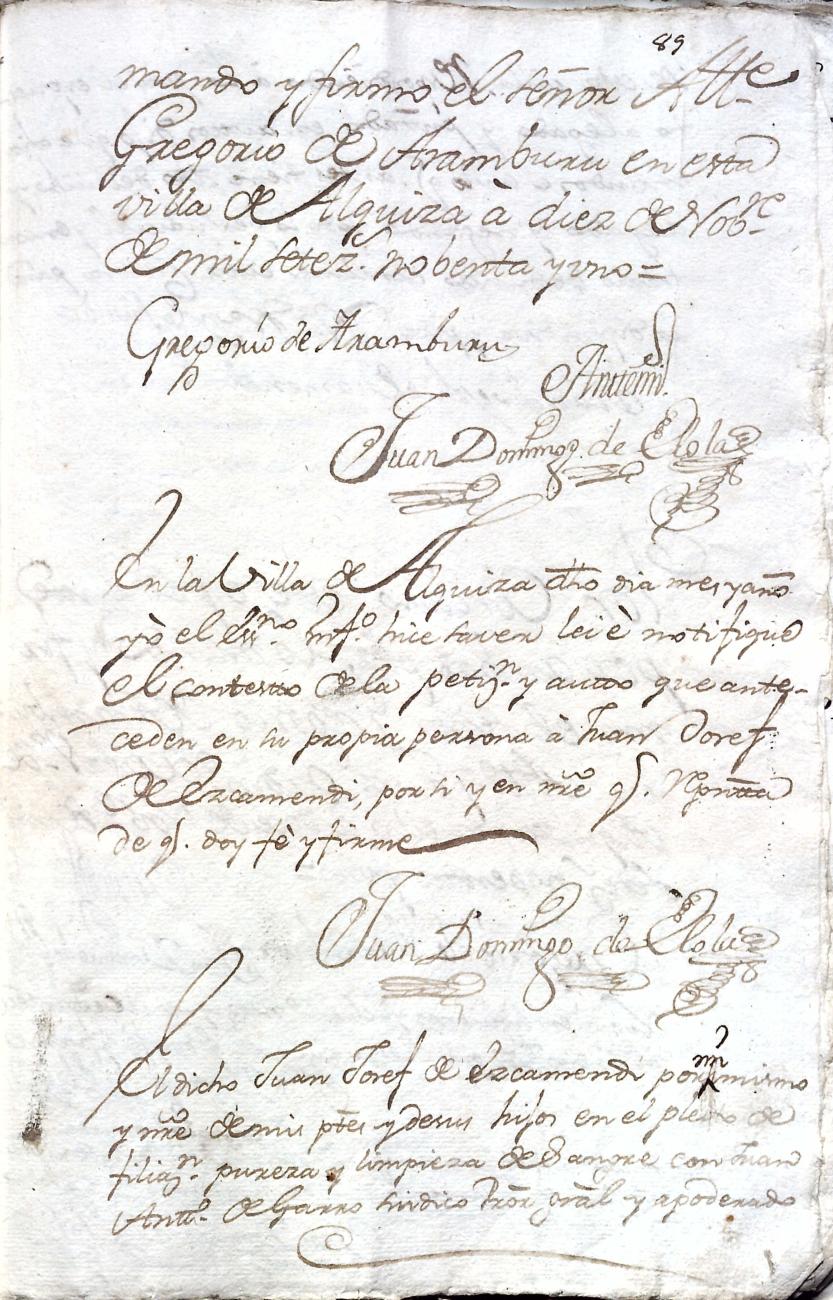 89
mando y firmo el señor Alłe
Gregorio de Aramburu en esta
villa de Alquiza à diez de Nobre
de mil setez.s nobenta y vno =
Gregorío de Aramburu
Antemi
Juan Domingo de Elola
En la Villa de Alquiza dho dia mes y año
yò el Essno. infro. hice saver lei è notifique
el contexto de la petizn. y autto que ante-
ceden en su propia persona à Juan Josef
de Ezcamendi, por si y en nrẽ q.e Repntta
de q.e doy fè y firme
Juan Domingo de Elola
El dicho Juan Josef de Ezcamendi por mi mismo
y nrẽ de mis ptẽs y de sus hijos en el pleito de
filiazn. pureza y limpieza de Sangre con Juan
Antto. de Garro sindico Pror grãl y apoderado